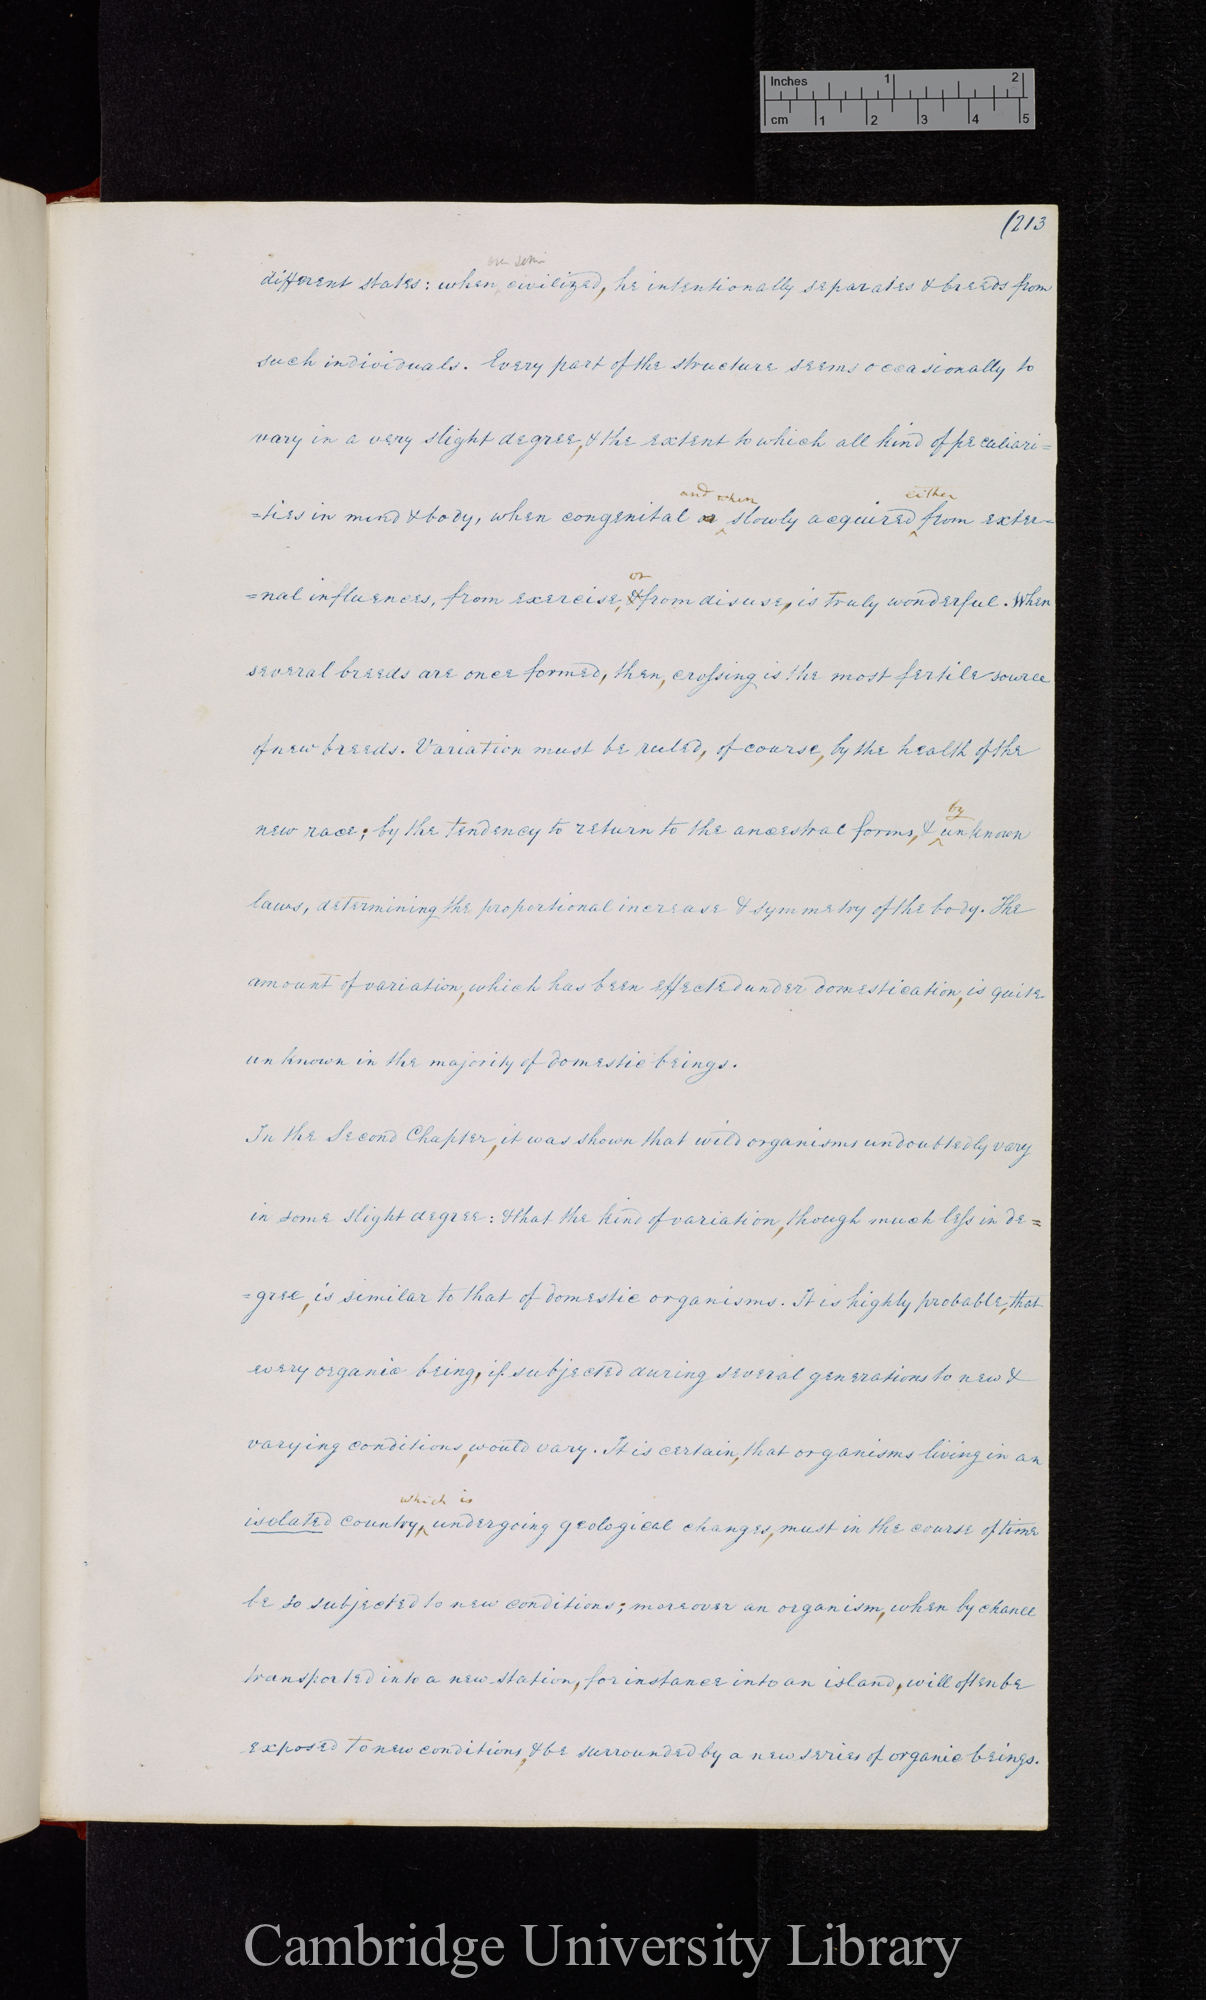 Inches 1 2
cm 1 2 3 4 5
(213
different states: when civilized, he intentionally separates & breeds from
such individuals. Every part of the structure seems occasionally to
vary in a very slight degree, & the extent to which all kind of peculiari=
and when either
=ties in mind & body, when congenital or slowly acquired from exter=
or
=nal influences, from exercise, & from disuse, is truly wonderful. When
several breeds are once formed, then, crossing is the most fertile source
of new breeds. Variation must be ruled, of course, by the health of the
by
new race; by the tendency to return to the ancestral forms, & unknown
laws, determining the proportional increase & symmetry of the body. The
amount of variation, which has been effected under domestication, is quite
unknown in the majority of domestic beings.
In the Second Chapter, it was shown that wild organisms undoubtedly vary
in some slight degree: & that the kind of variation, though much less in de=
=gree, is similar to that of domestic organisms. It is highly probable, that
every organic being, if subjected during several generations to new &
varying conditions, would vary. It is certain, that organisms living in an
which is
isolated country, undergoing geological changes, must in the course of time
be so subjected to new conditions; moreover an organism, when by chance
transported into a new station, for instance into an island, will often be
exposed to new conditions, & be surrounded by a new series of organic beings.
Cambridge University Library